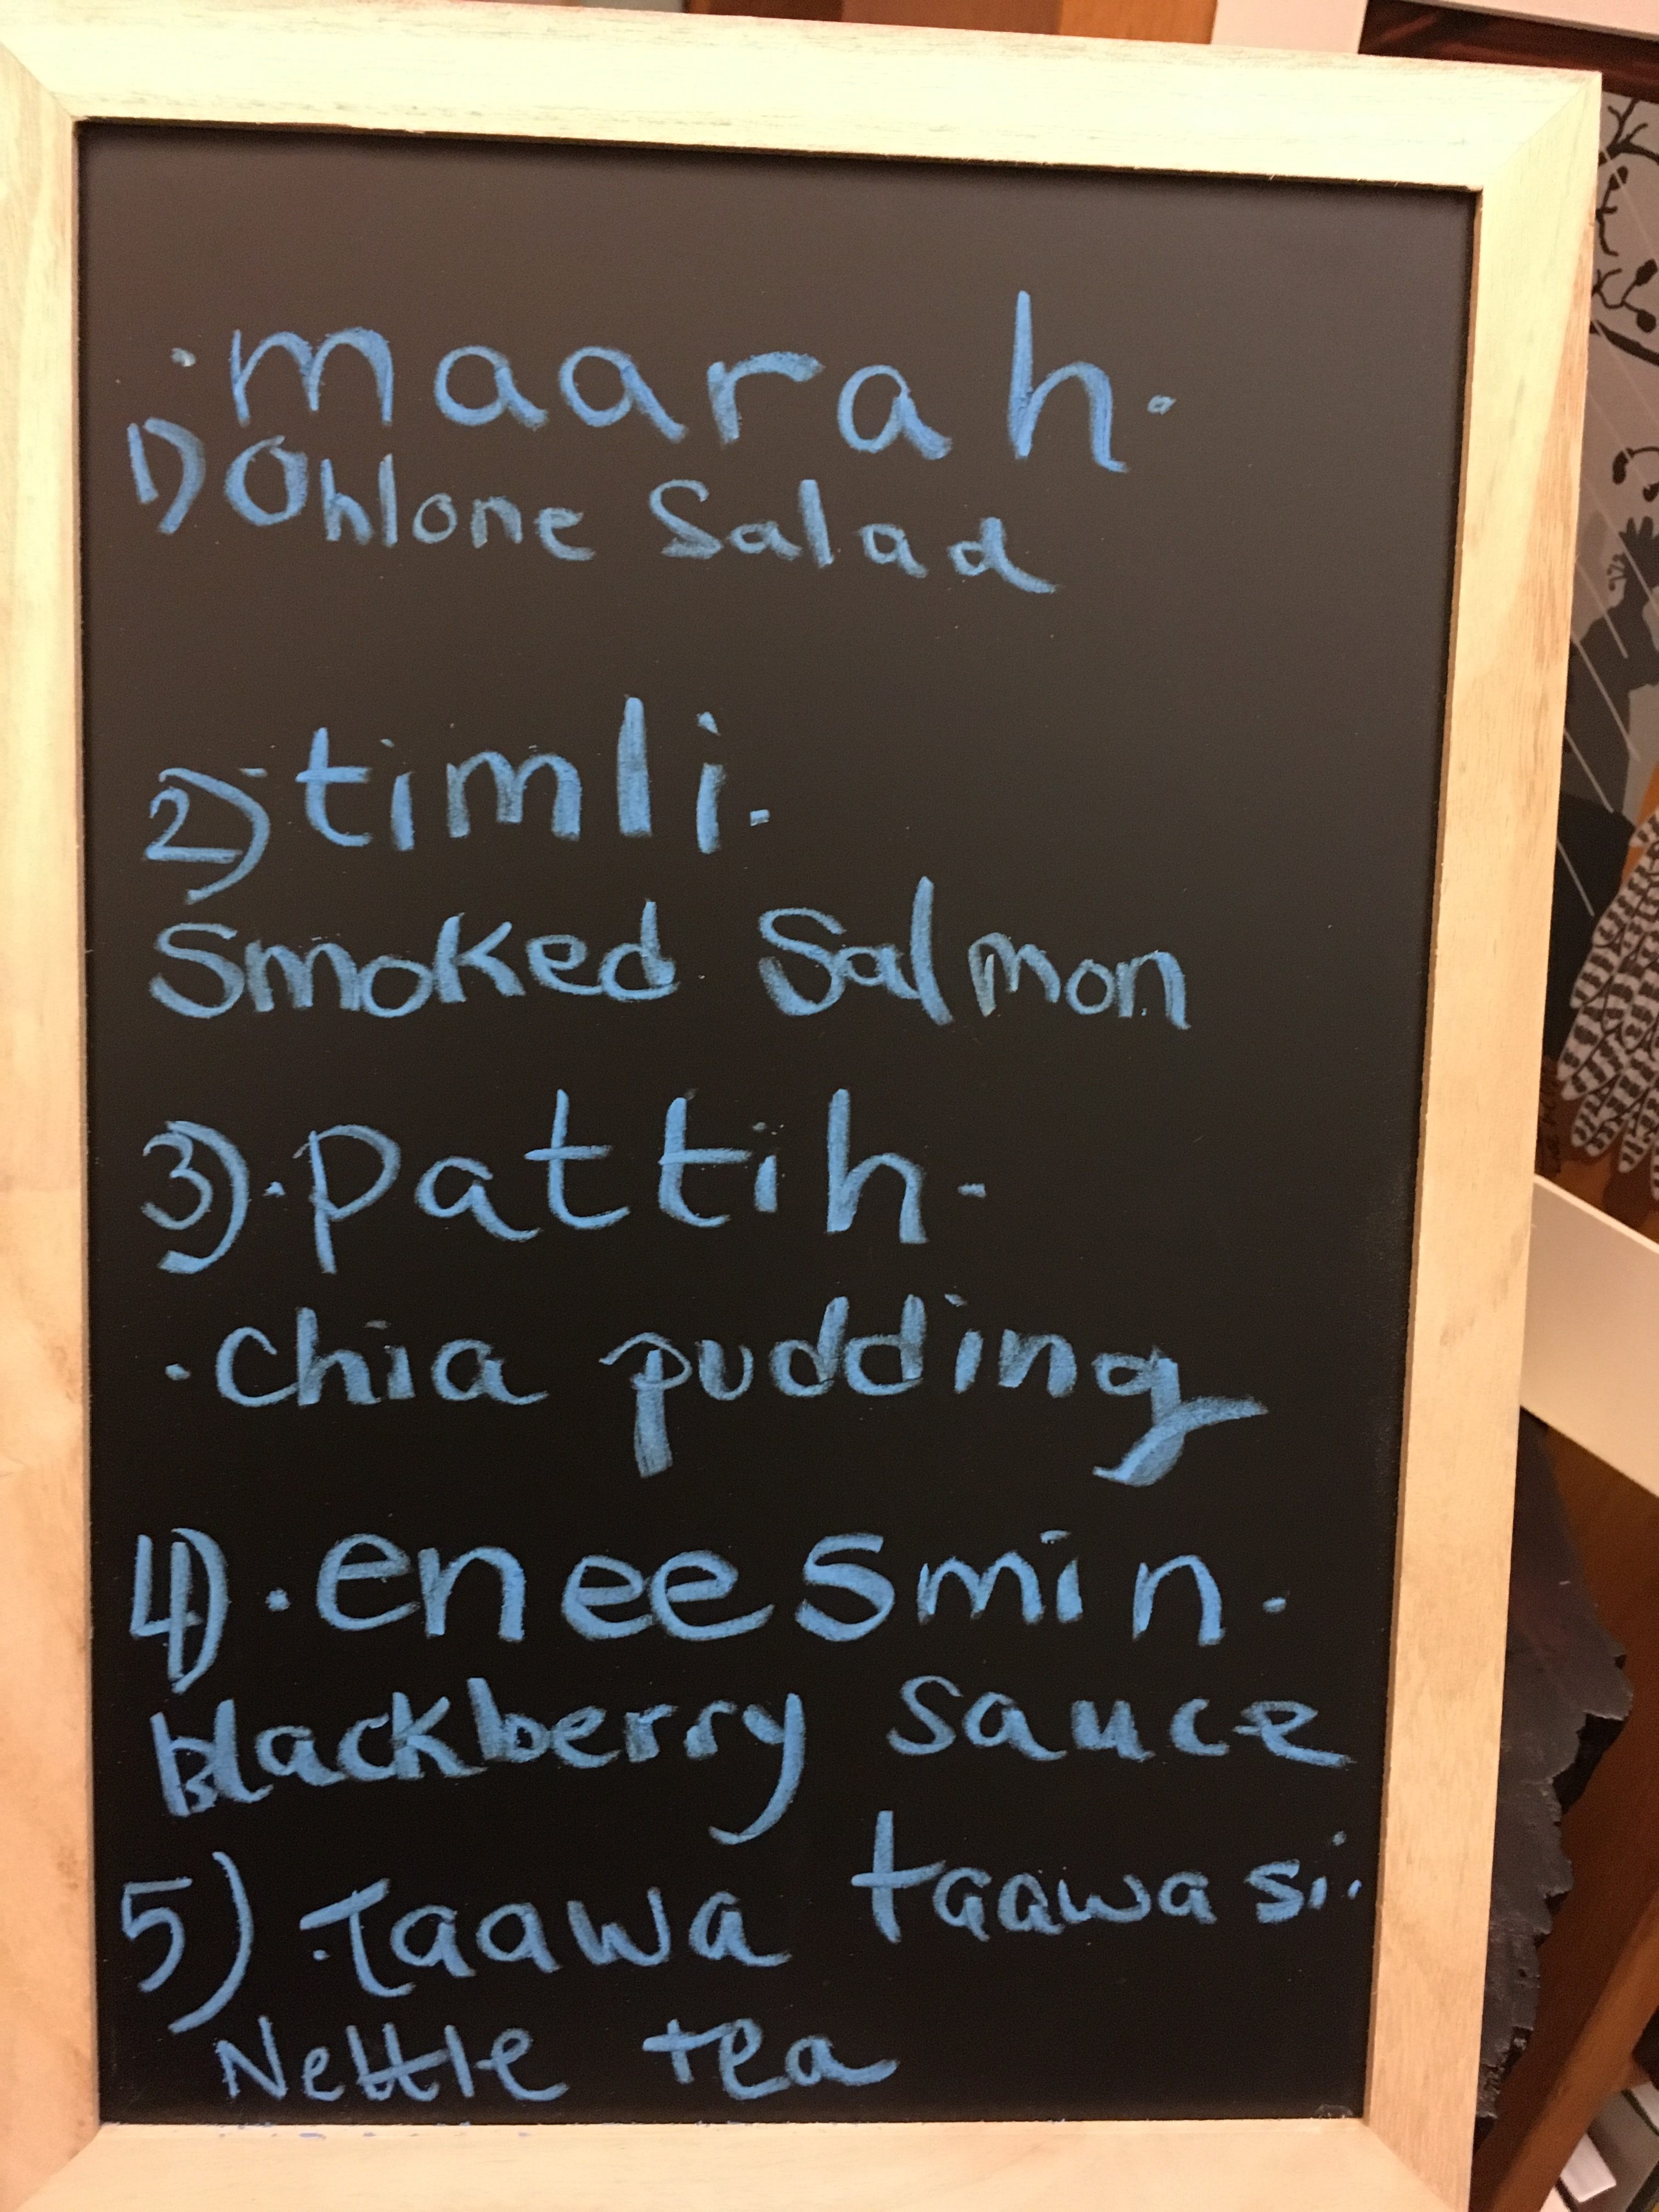 ·maarah·
1) Ohlone Salad
2) timli.
Smoked Salmon
3) ·pattih·
·chia pudding
4) ·eneesmin.
blackberry sauce
5) ·taawa taawasi·
Nettle tea